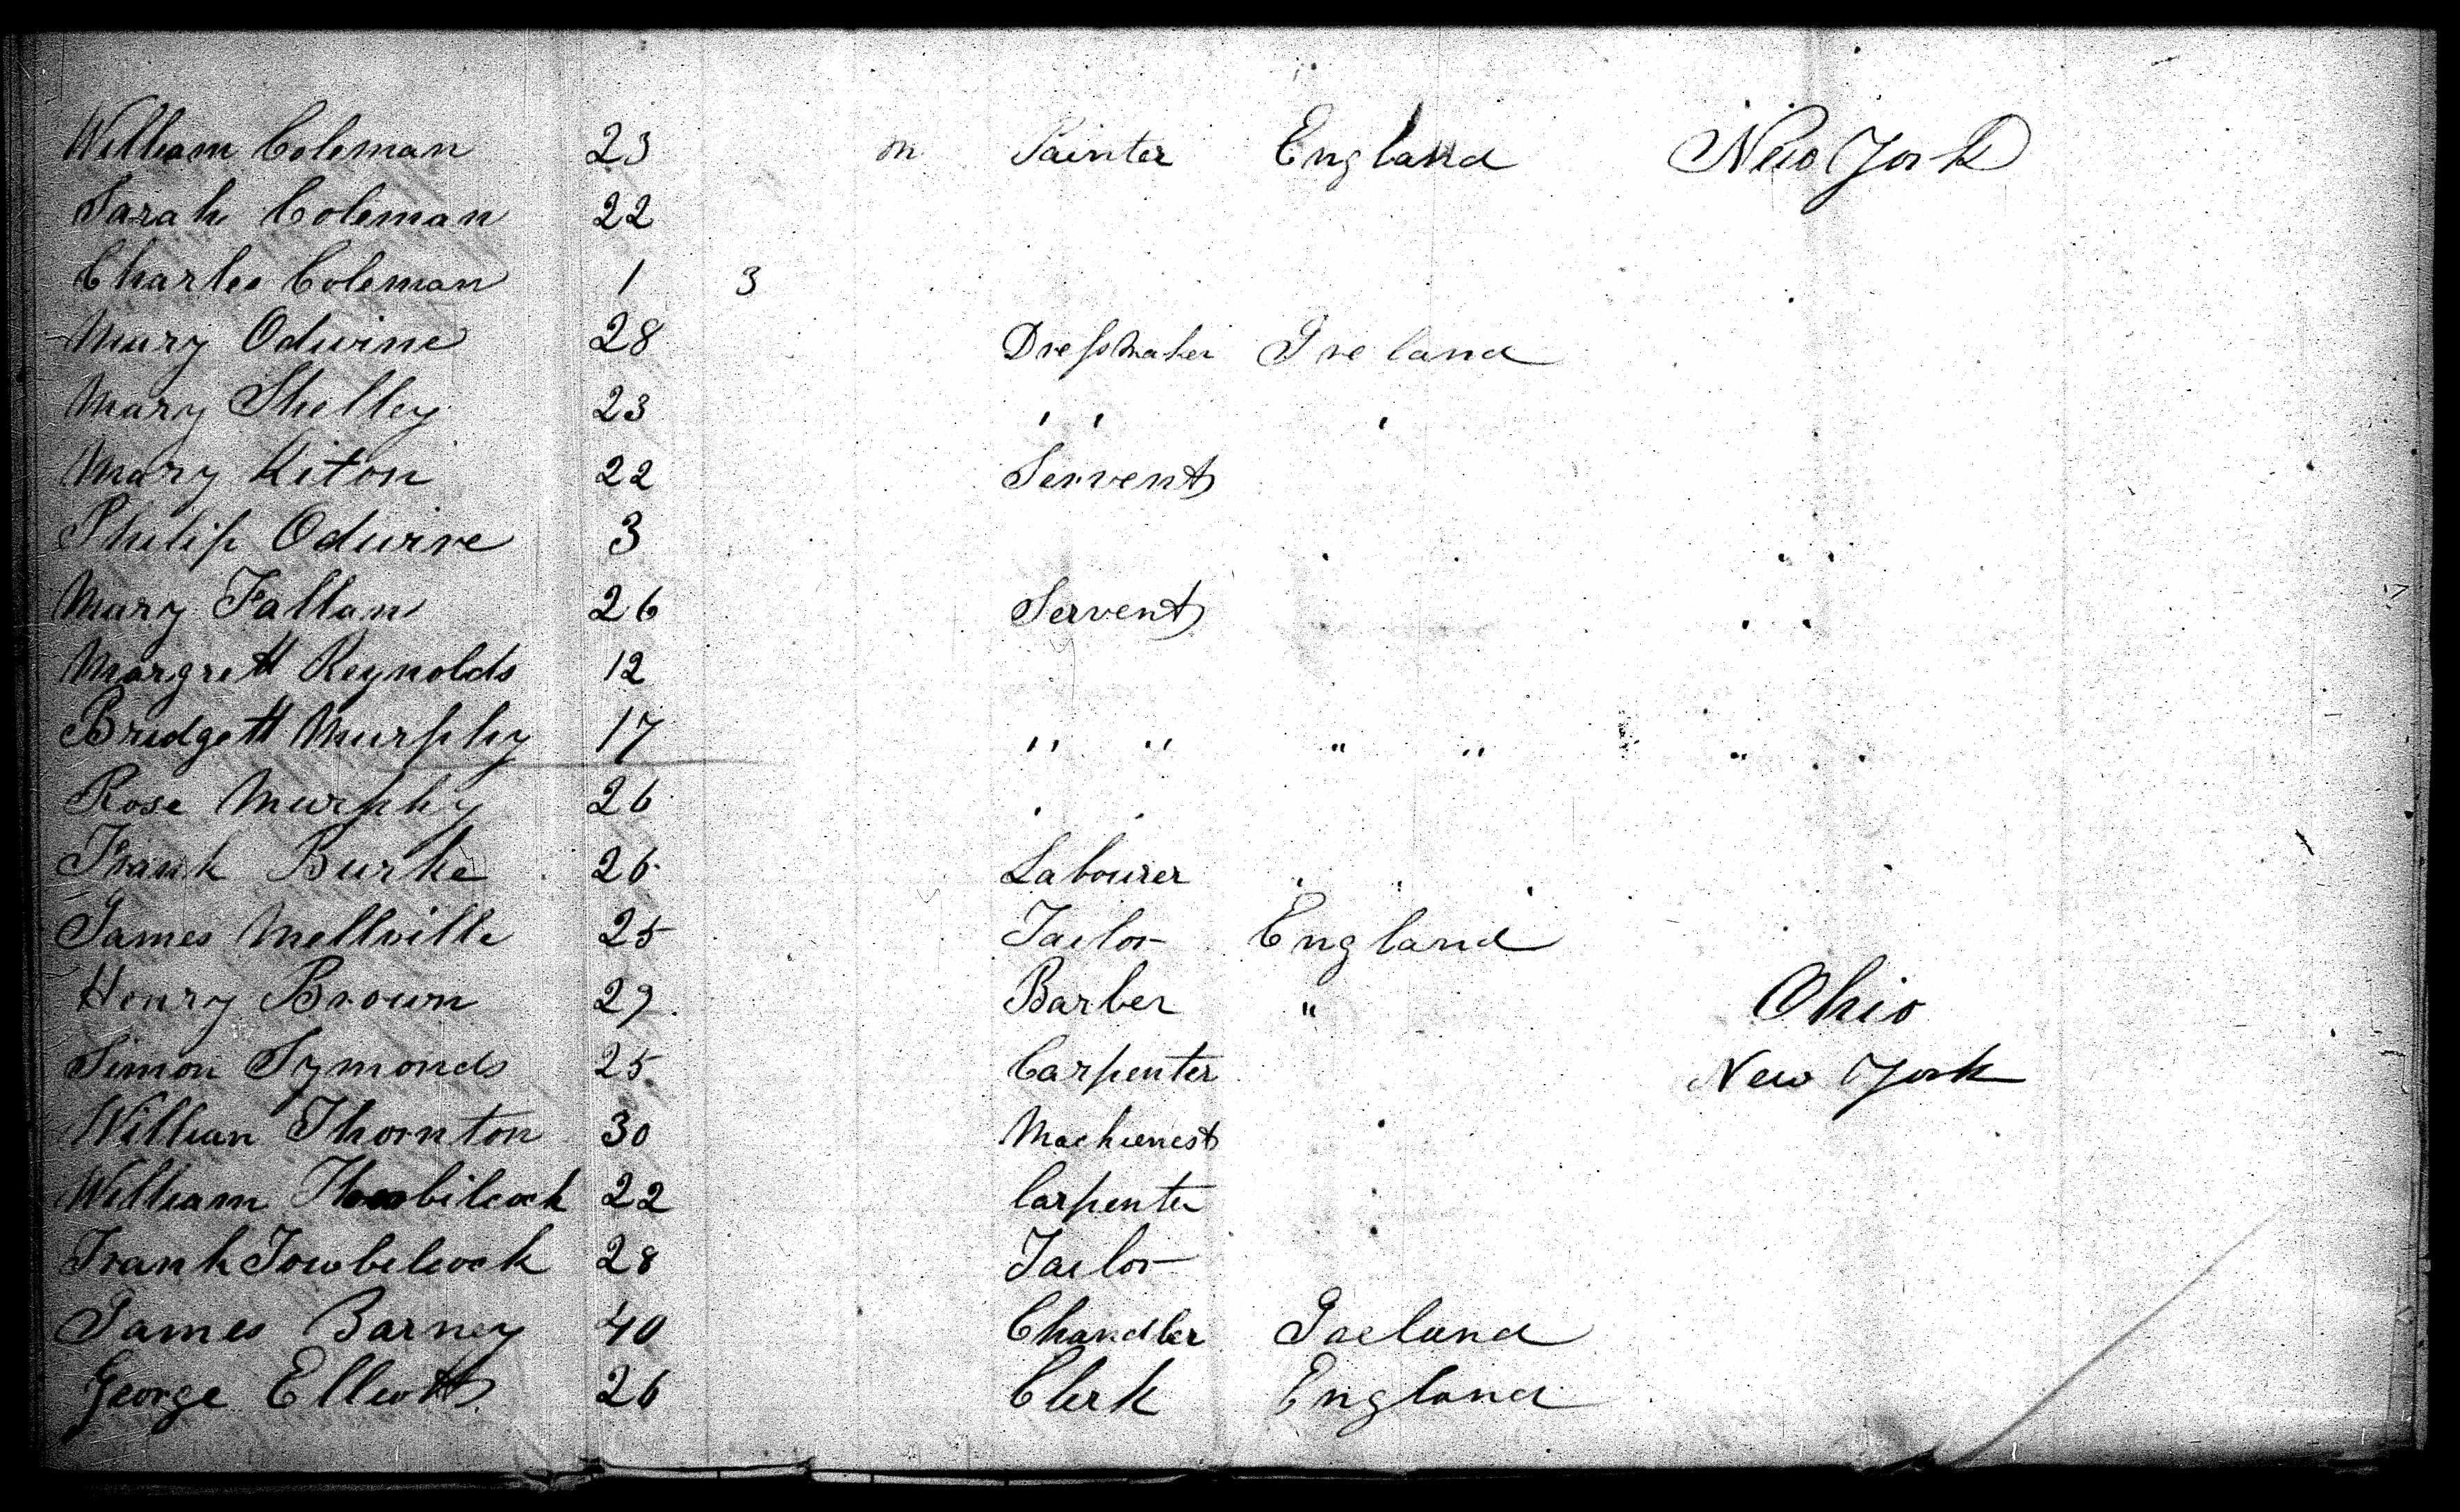 William Coleman 23 m Painter England New York
Sarah Coleman 22
Charles Coleman 1 3
Mary Odwine 28 Dressmaker Ireland
Mary Shelley 23 " "
Mary Kiton 22 Servent
Philip Odwine 3 " "
Mary Fallan 26 Servent "
Margrett Reynolds 12
Bridgett Murphy 17 " " " " " "
Rose Murphy 26 "
Frank Burke 26 Labourer "
James Mellville 25 Tailor England
Henry Brown 29 Barber " Ohio
Simon Symonds 25 Carpenter New York
William Thornton 30 Machienest "
William 22 Carpenter "
Frank Towbelcock 28 Tailor
James Barney 40 Chandler Ireland
George Elliott 26 Clerk England